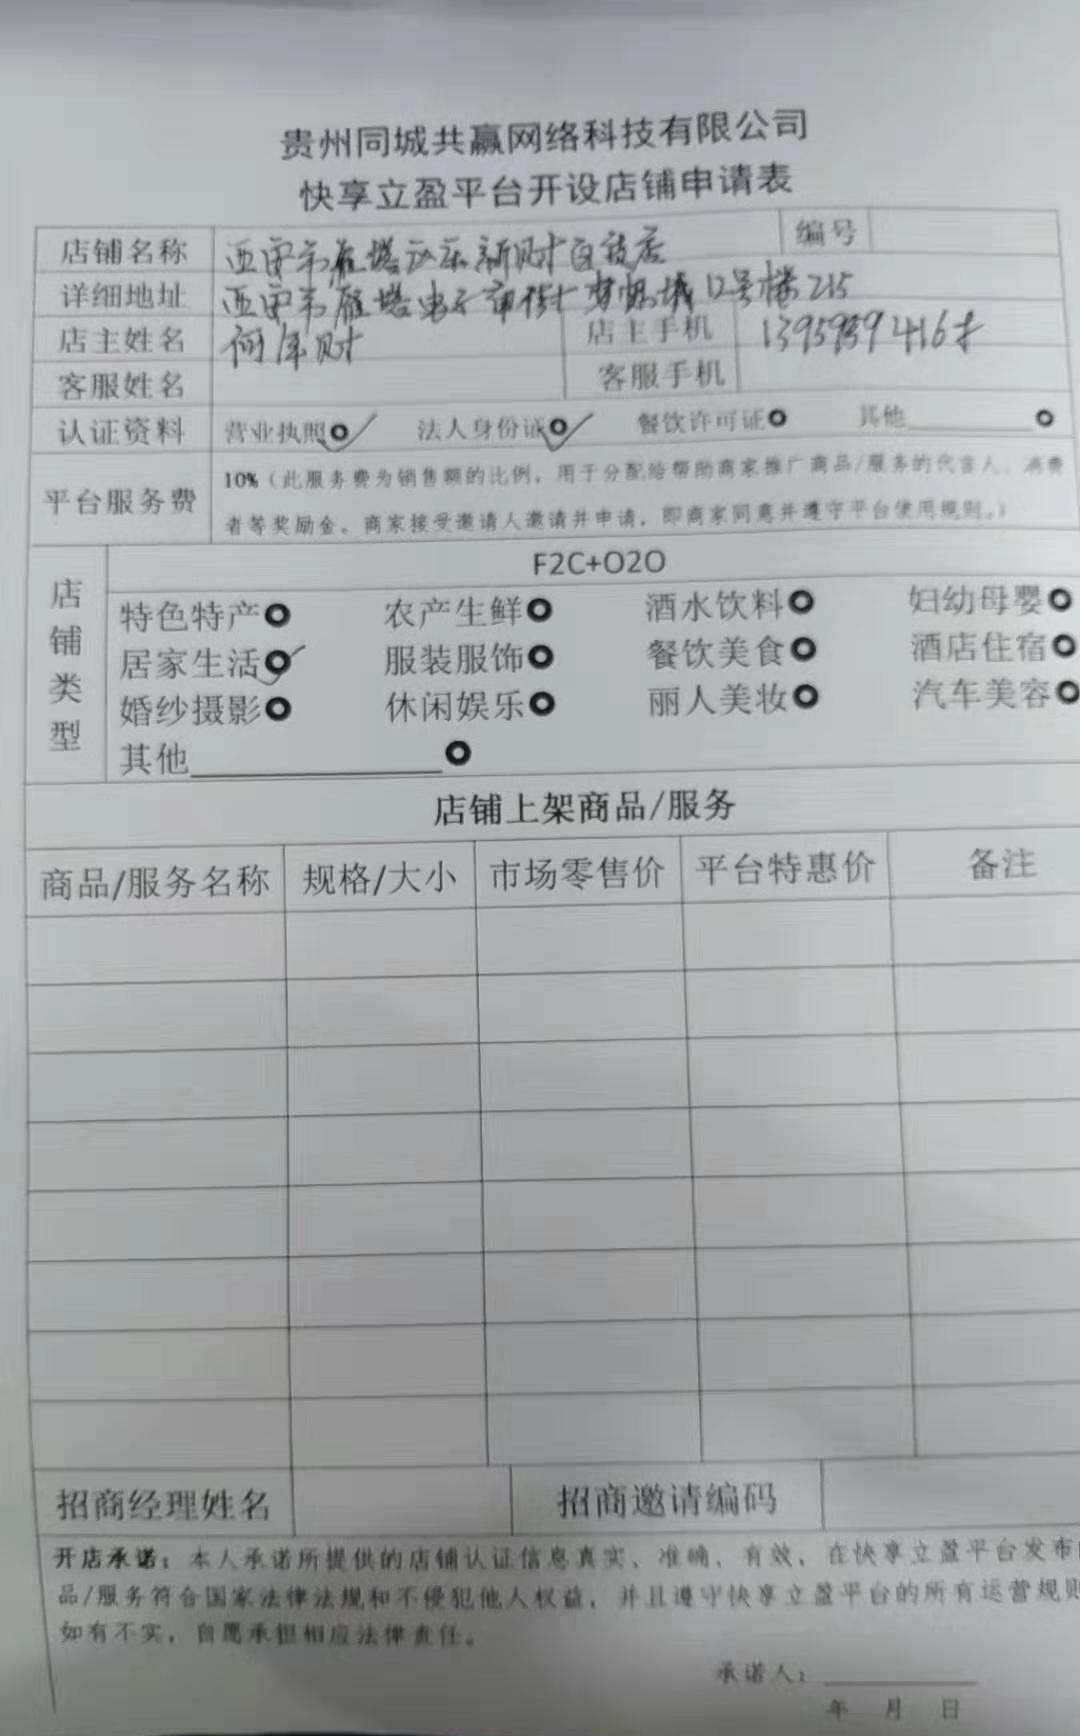 贵州同城共赢网络科技有限公司
快享立盈平台开设店铺申请表
店铺名称 西安市雁塔区 新财百货店 编号
详细地址 西安市雁塔电子 街 城 12号楼215
店主姓名 何 财 店主手机
客服姓名 客服手机
认证资料 营业执照 法人身份证 餐饮许可证 其他
平台服务费 10%（此服务费为销售额的比例，用于分配给帮助商家推广商品/服务的代言人、消费
者等奖励金。商家接受邀请人邀请并申请，即商家同意并遵守平台使用规则。）
店铺类型
F2C+O2O
特色特产 农产生鲜 酒水饮料 妇幼母婴
居家生活 服装服饰 餐饮美食 酒店住宿
婚纱摄影 休闲娱乐 丽人美妆 汽车美容
其他
店铺上架商品/服务
商品/服务名称 规格/大小 市场零售价 平台特惠价 备注
招商经理姓名 招商邀请编码
开店承诺：本人承诺所提供的店铺认证信息真实、准确、有效，在快享立盈平台发布
品/服务符合国家法律法规和不侵犯他人权益，并且遵守快享立盈平台的所有运营规则
如有不实，自愿承担相应法律责任。
承诺人：
年 月 日